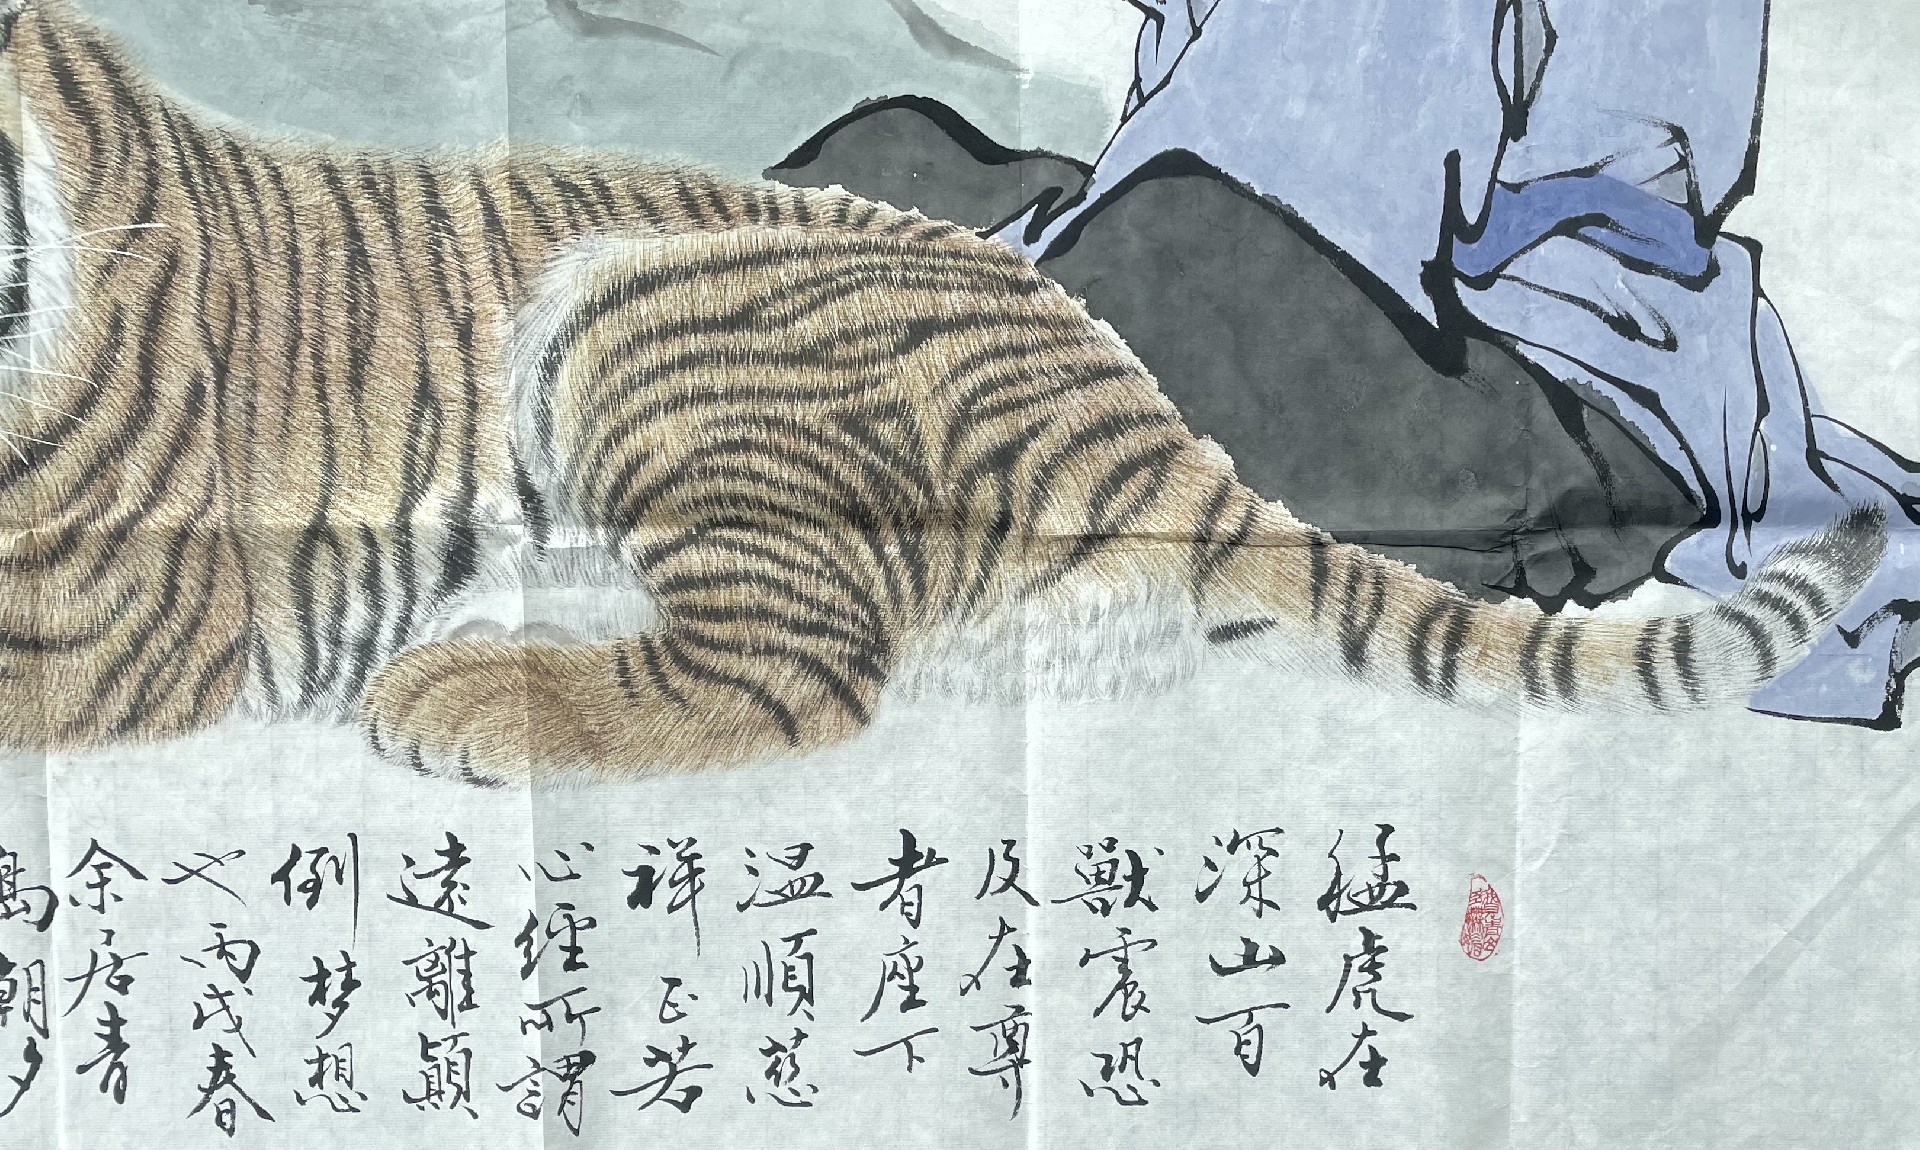 猛虎在
深山百
獸震恐
及在尊
者座下
溫順慈
祥正若
心經所謂
遠離顛
倒梦想
也丙戌春
余居青
島朝夕